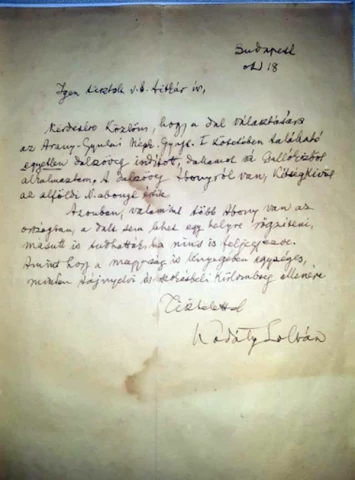 Budapest
okt 18
Igen tisztelt v.b. titkár úr,
Kérdésére közlöm, hogy a dal választására
az Arany-Gyulai Népk. Gyüjt. I kötetében található
egyetlen dalszöveg indított, dallamot
alkalmaztam. A dalszöveg Abonyról van, kétségkívül
az alföldi
Azonban, valamint több Abony van az
országban, a dalt sem lehet egy helyre rögzíteni,
másutt is tudhatták, ha nincs is feljegyezve.
Amint hogy a magyarság is lényegében egységes,
minden tájnyelvi és külömbség ellenére
Tisztelettel
Kodály Zoltán